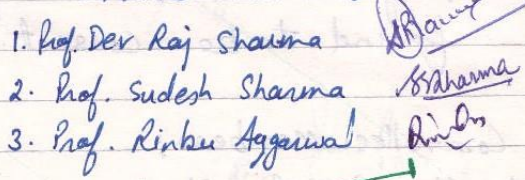 1. Prof. Dev Raj Sharma
2. Prof. Sudesh Sharma SSharma
3. Prof. Rinku Aggarwal Rinku